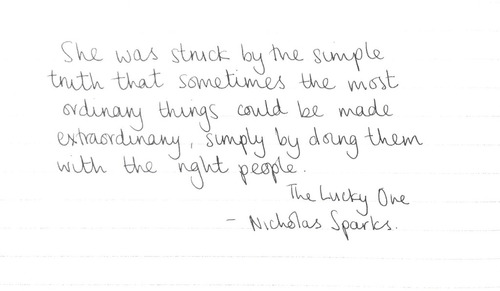 She was struck by the simple
truth that sometimes the most
ordinary things could be made
extraordinary, simply by doing them
with the right people.
The Lucky One
- Nicholas Sparks.